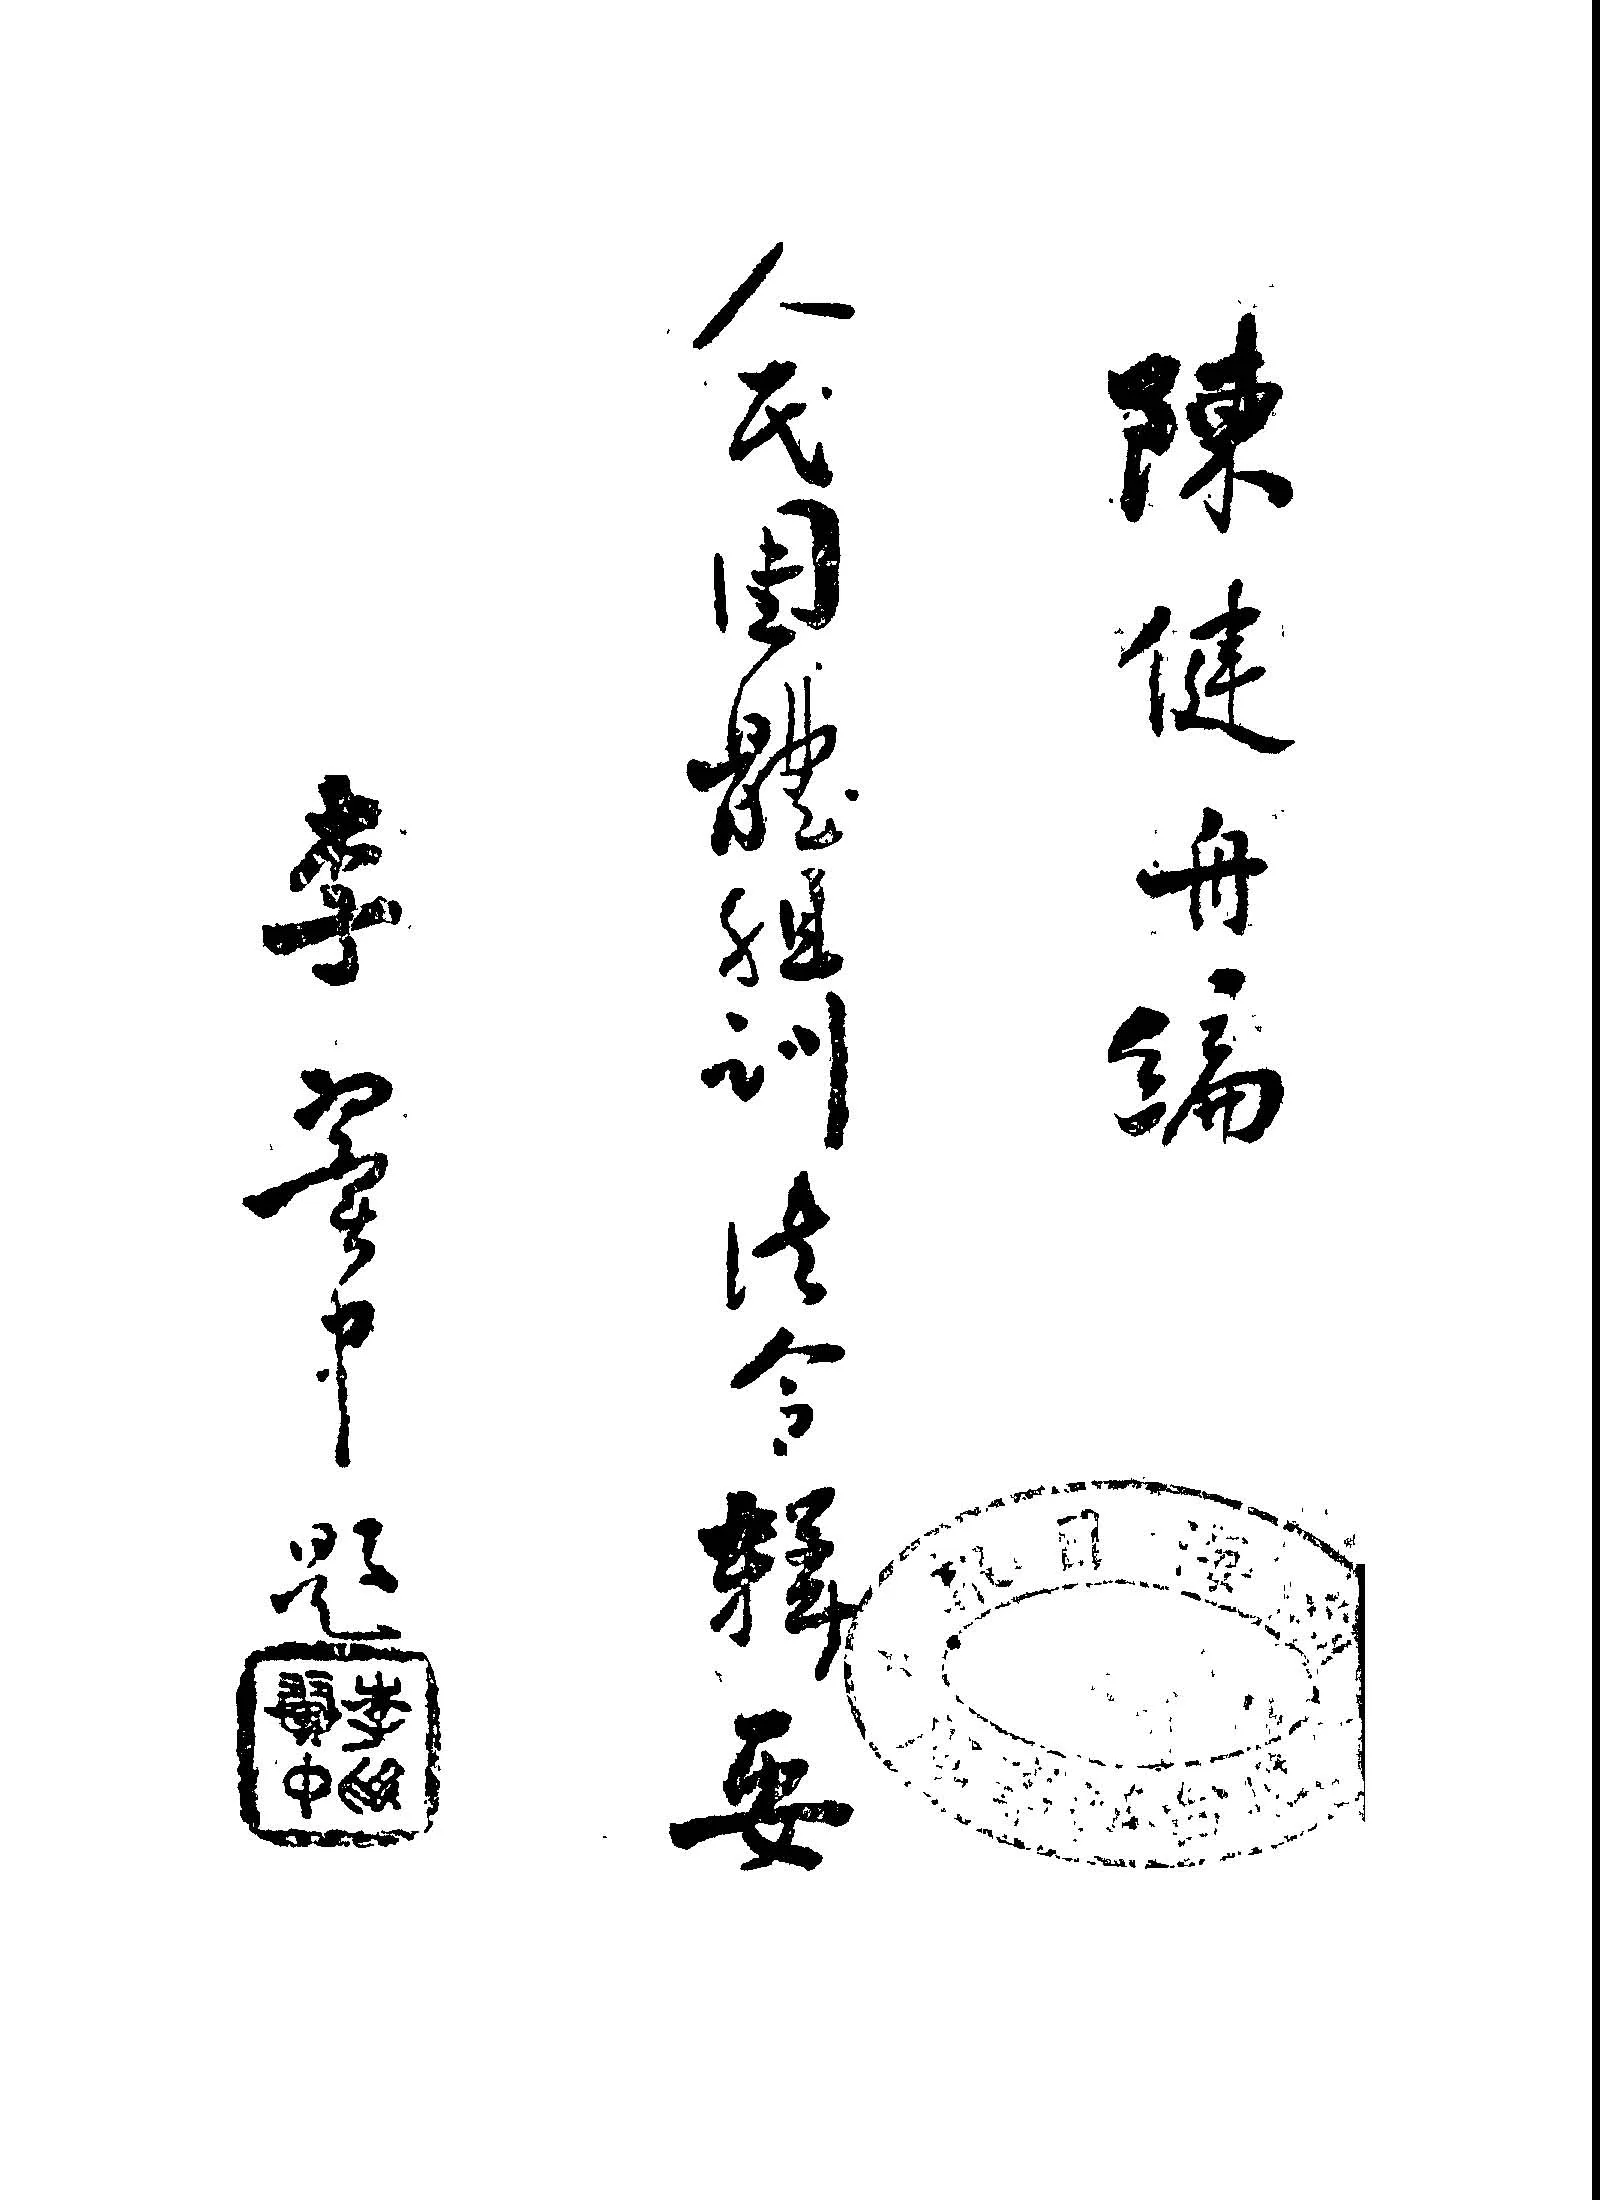 陳健舟編
人民團體組訓法令輯要
李翼中題
李翼中